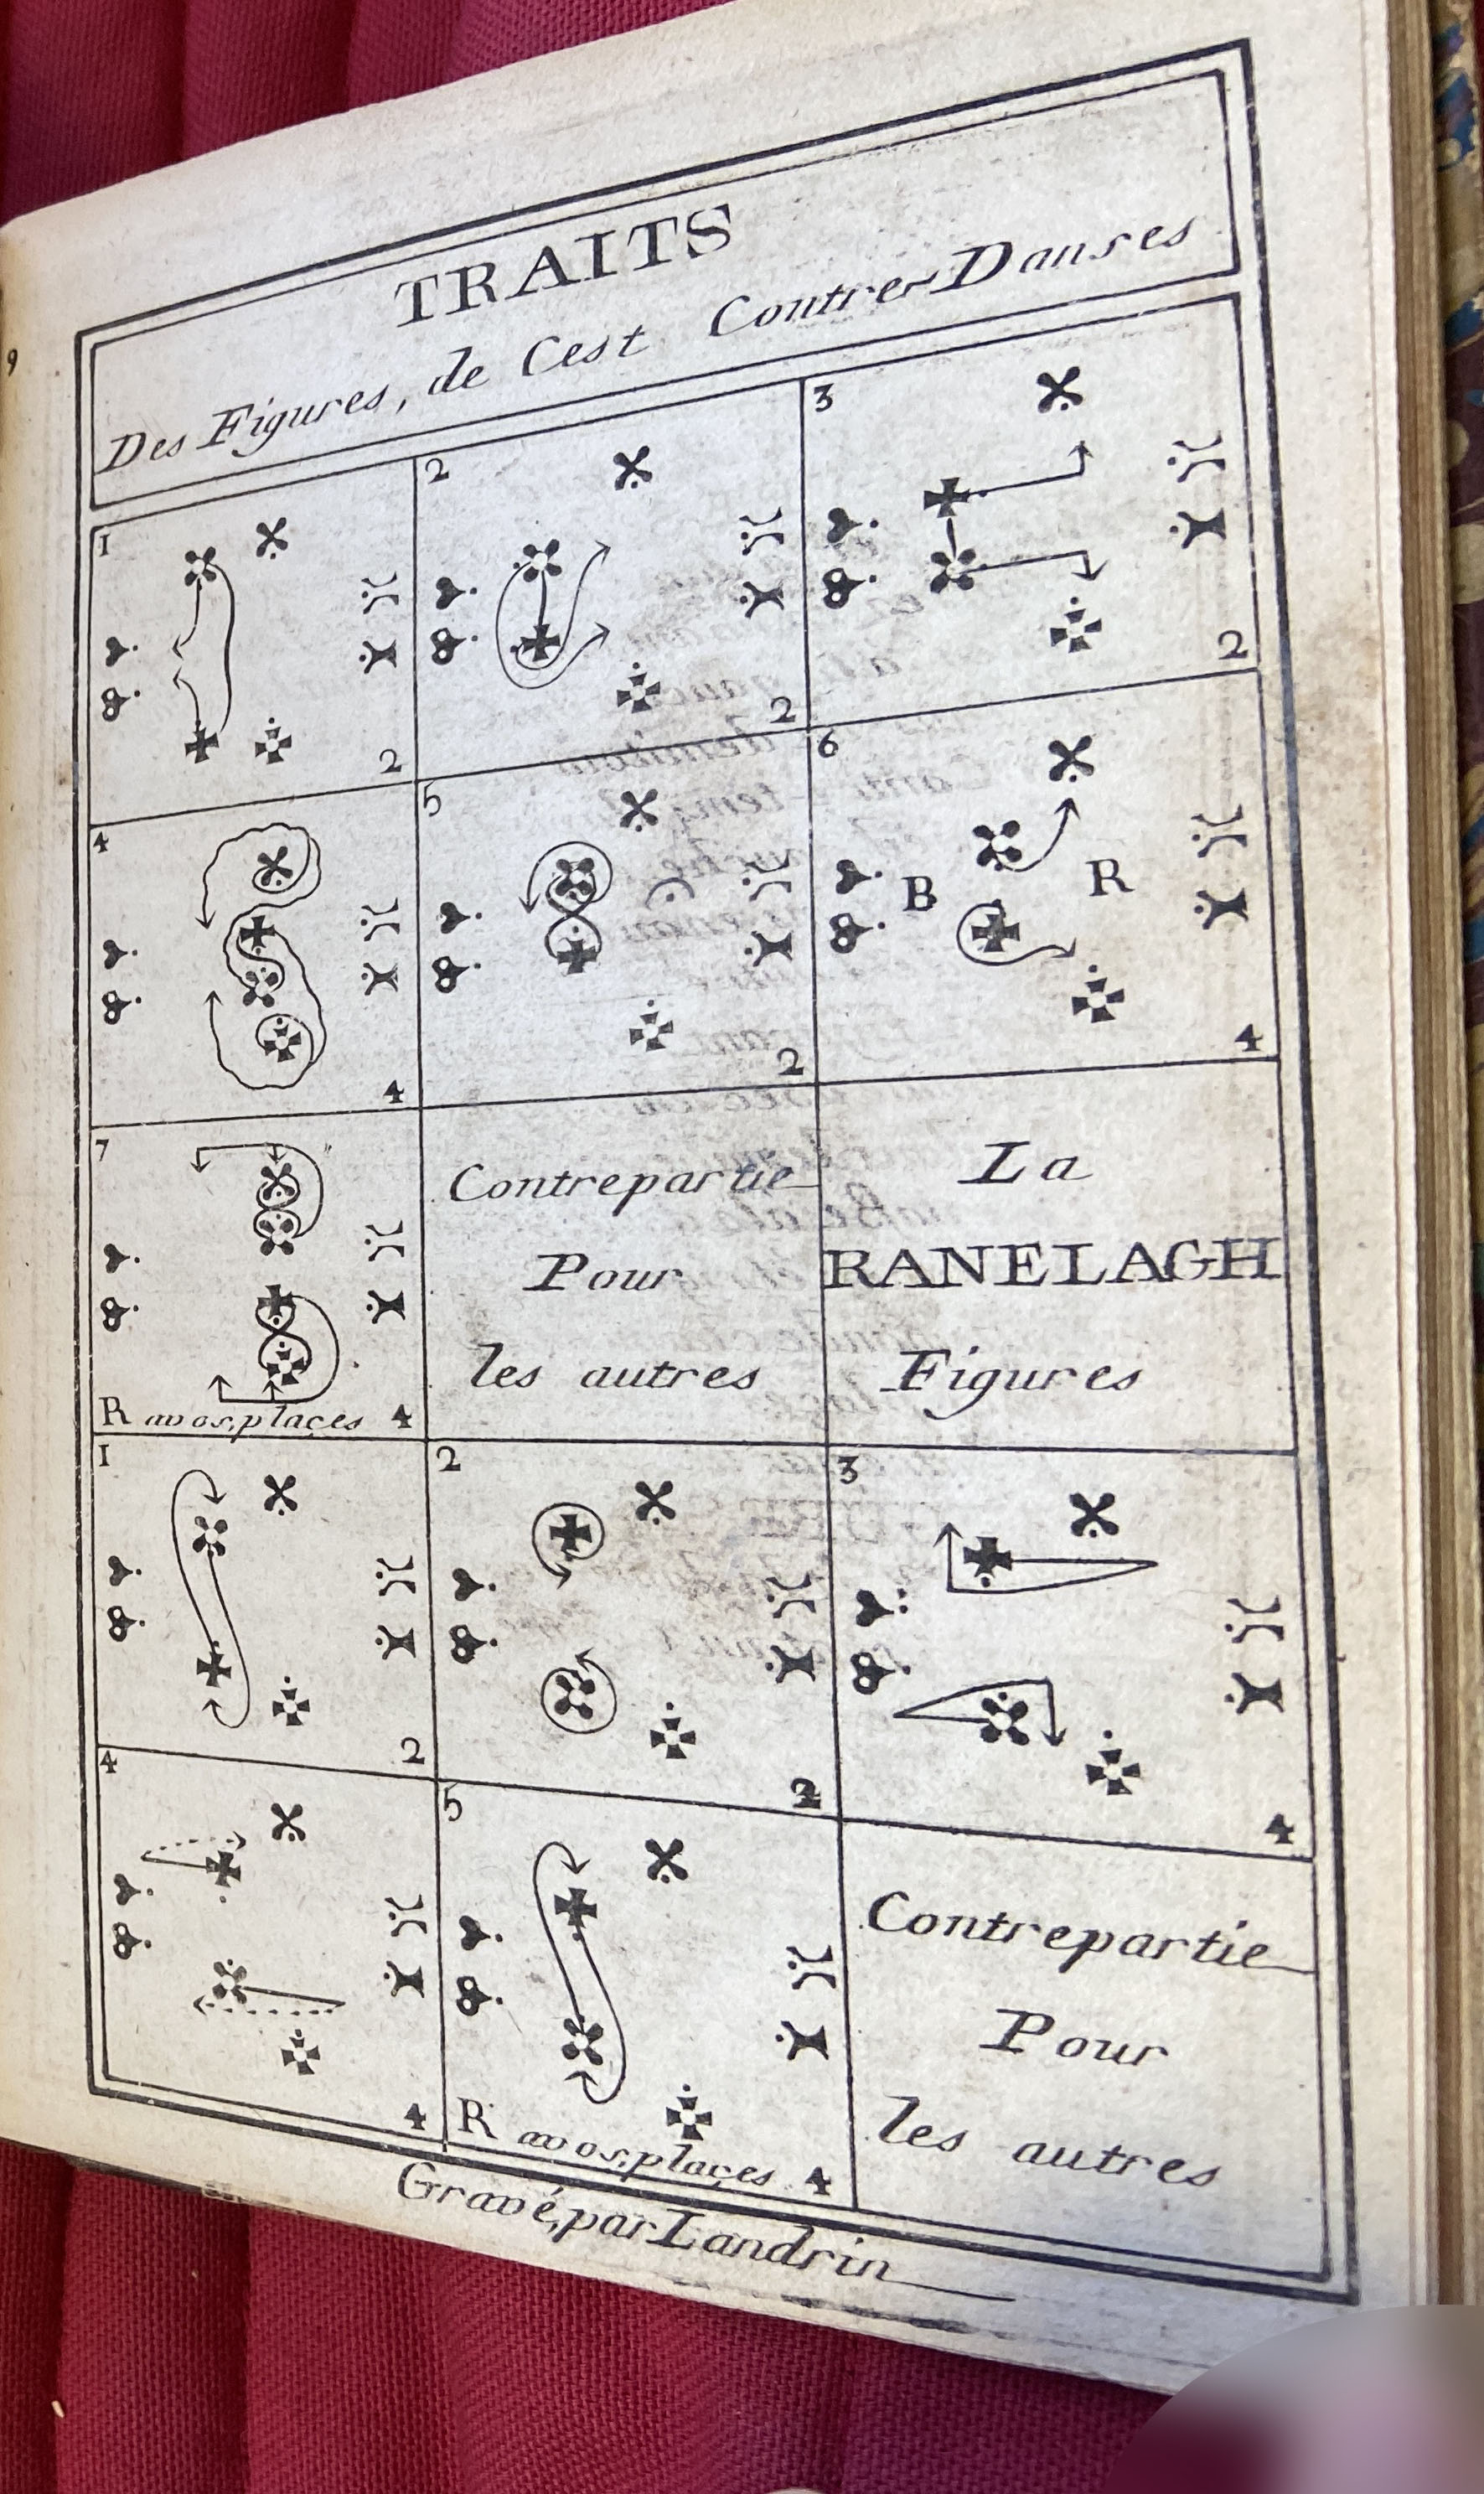 TRAITS
Des Figures, de Cest Contre Danses
1
2
2
2
3
2
4
4
5
2
6
B
R
4
7
R avos, places 4
Contrepartie
Pour
les autres
La
RANELAGH
Figures
1
2
2
2
3
4
4
4
5
R avos, places 4
Contrepartie
Pour
les autres
Gravé, par Landrin
9